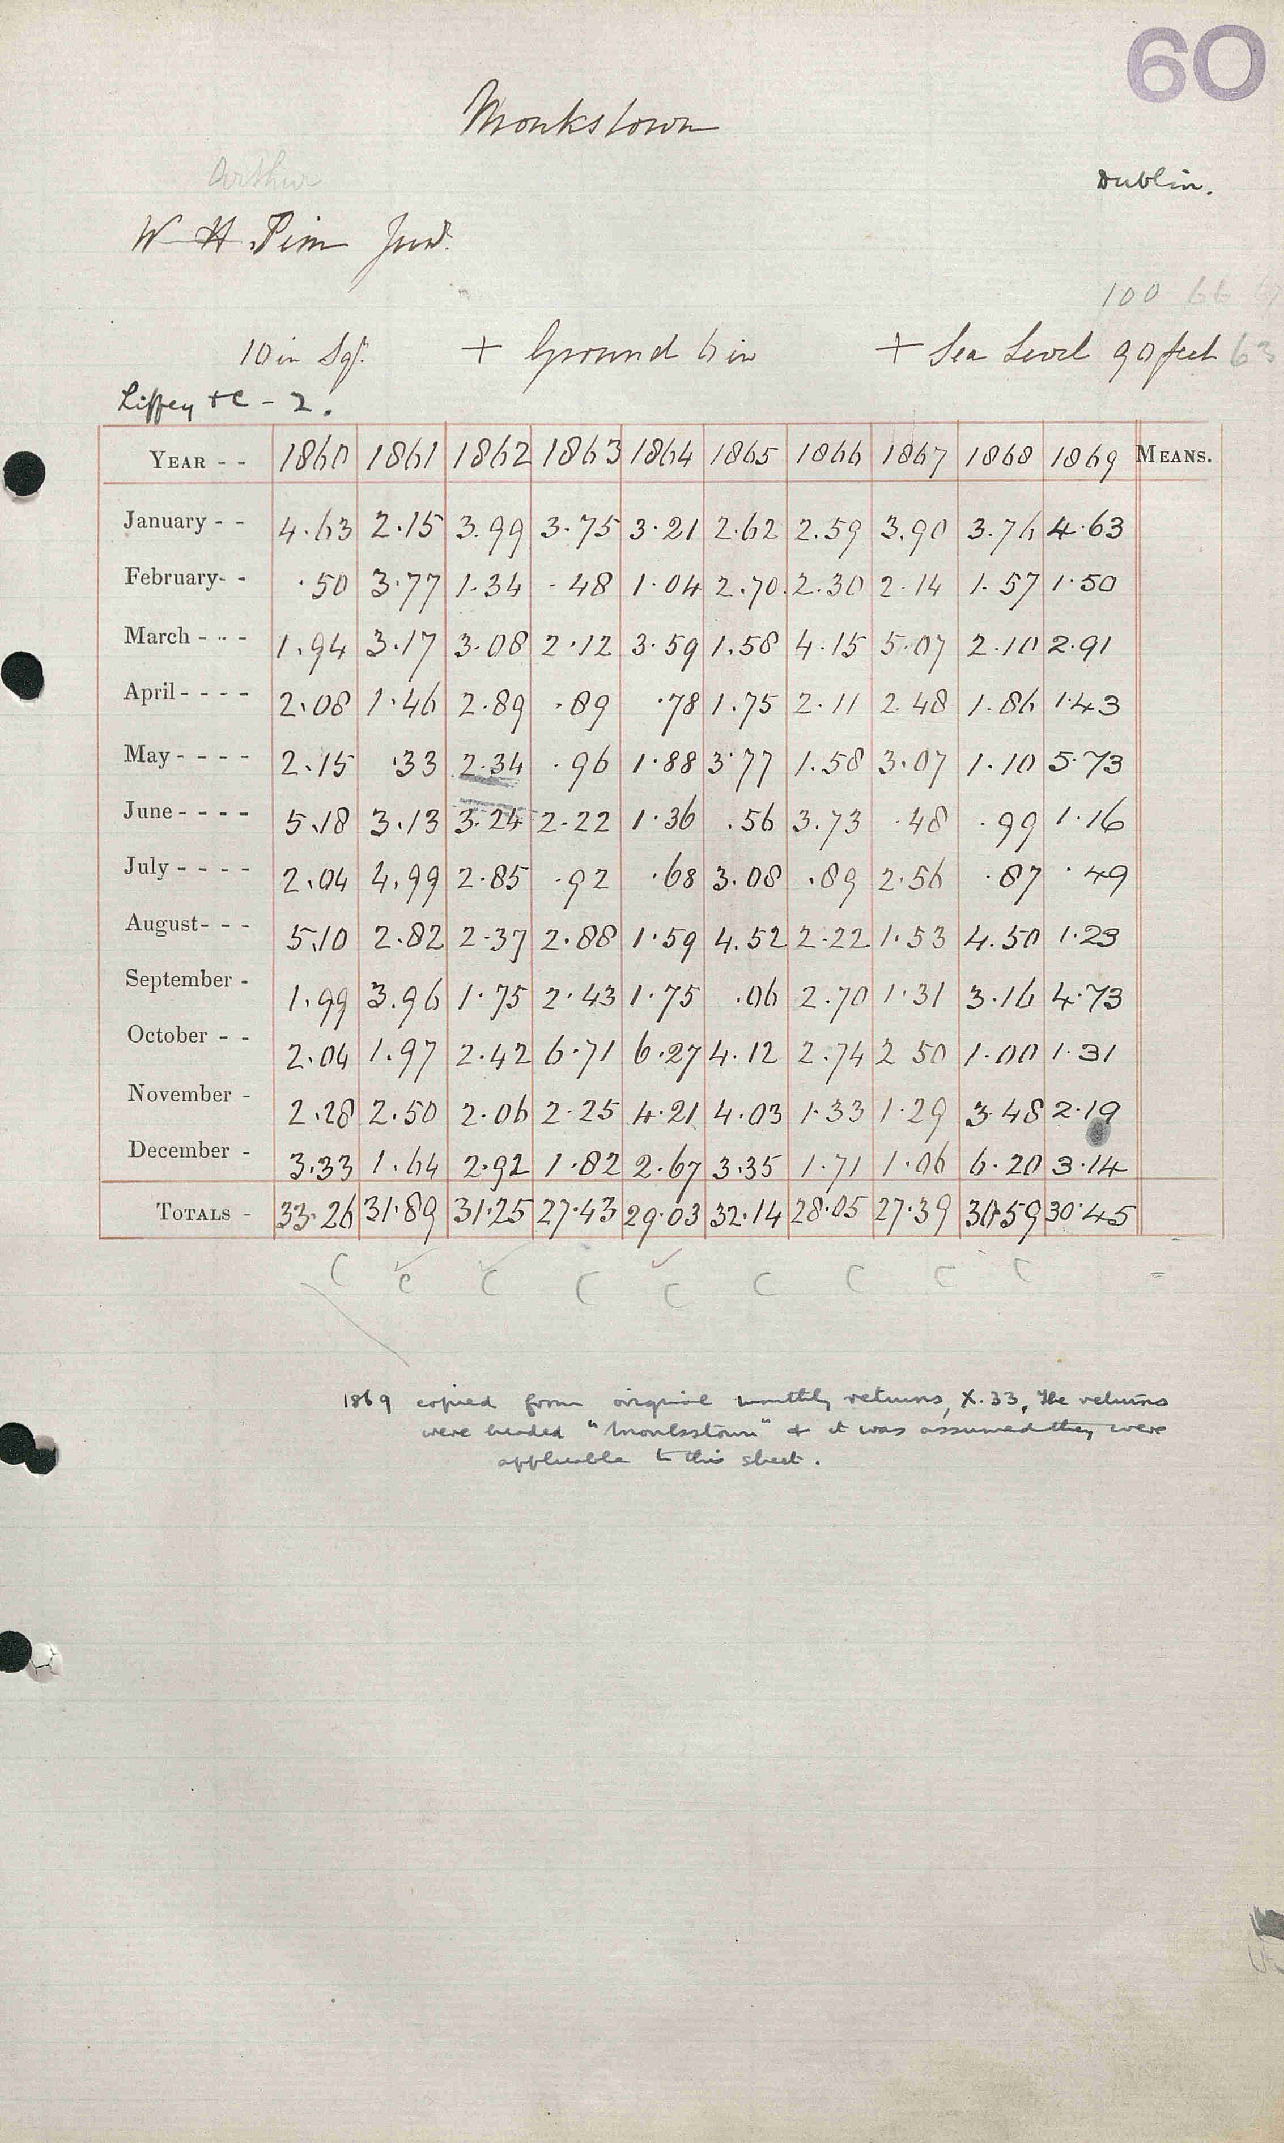 60
Monkstown
Arthur
Dublin.
W H Pim Junr.
100 66
10 in Sqr. + Ground 6 in + Sea Level 90 feet 63
Liffey &c - 2.
YEAR - - 1860 1861 1862 1863 1864 1865 1866 1867 1868 1869 MEANS.
January - - 4.63 2.15 3.99 3.75 3.21 2.62 2.59 3.90 3.76 4.63
February- - .50 3.77 1.34 .48 1.04 2.70 2.30 2.14 1.57 1.50
March - - - 1.94 3.17 3.08 2.12 3.59 1.58 4.15 5.07 2.10 2.91
April - - - - 2.08 1.46 2.89 .89 .78 1.75 2.11 2.48 1.86 1.43
May - - - - 2.15 .33 2.34 .96 1.88 3.77 1.58 3.07 1.10 5.73
June - - - - 5.18 3.13 3.24 2.22 1.36 .56 3.73 .48 .99 1.16
July - - - - 2.04 4.99 2.85 .92 .68 3.08 .89 2.56 .87 .49
August- - - 5.10 2.82 2.37 2.88 1.59 4.52 2.22 1.53 4.50 1.23
September - 1.99 3.96 1.75 2.43 1.75 .06 2.70 1.31 3.16 4.73
October - - 2.04 1.97 2.42 6.71 6.27 4.12 2.74 2 50 1.00 1.31
November - 2.28 2.50 2.06 2.25 4.21 4.03 1.33 1.29 3.48 2.19
December - 3.33 1.64 2.92 1.82 2.67 3.35 1.71 1.06 6.20 3.14
TOTALS - 33.26 31.89 31.25 27.43 29.03 32.14 28.05 27.39 30.59 30.45
C C C C C C C C C
1869 copied from original monthly returns, X.33, The returns
were headed "Monkstown" & it was assumed they were
applicable to this sheet.